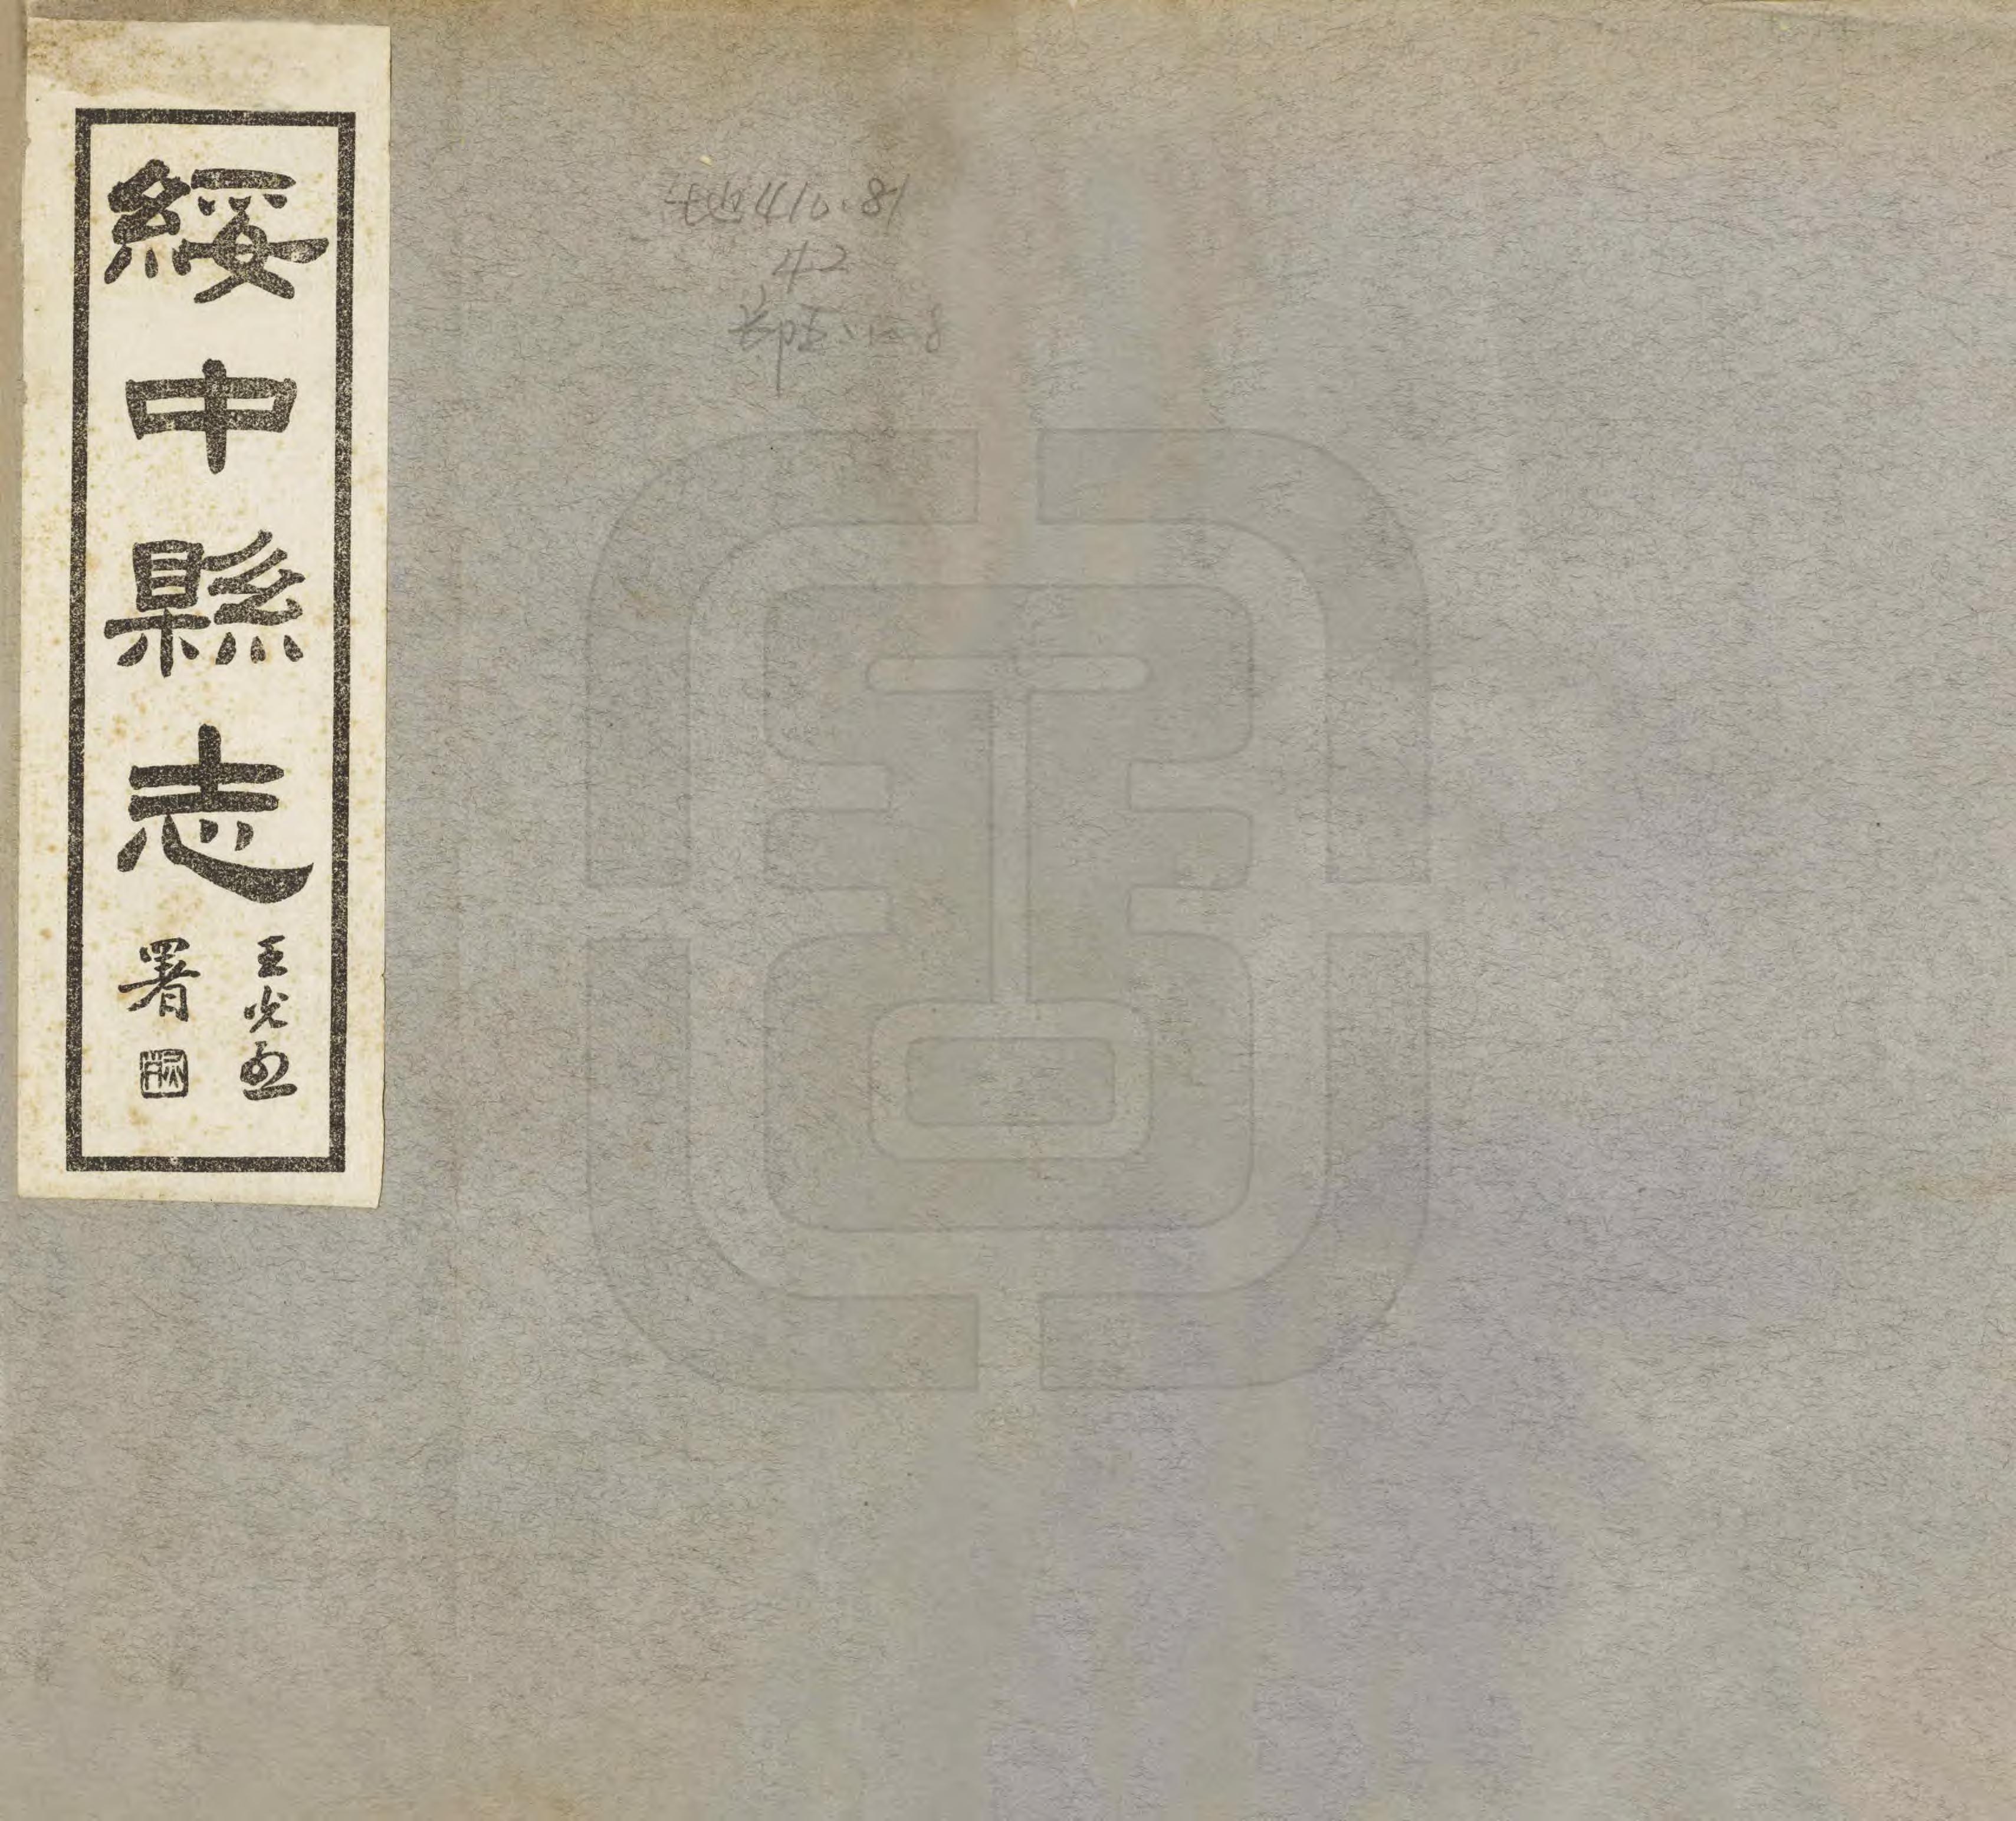 綏中縣志
王光烈
署
地410.81
42